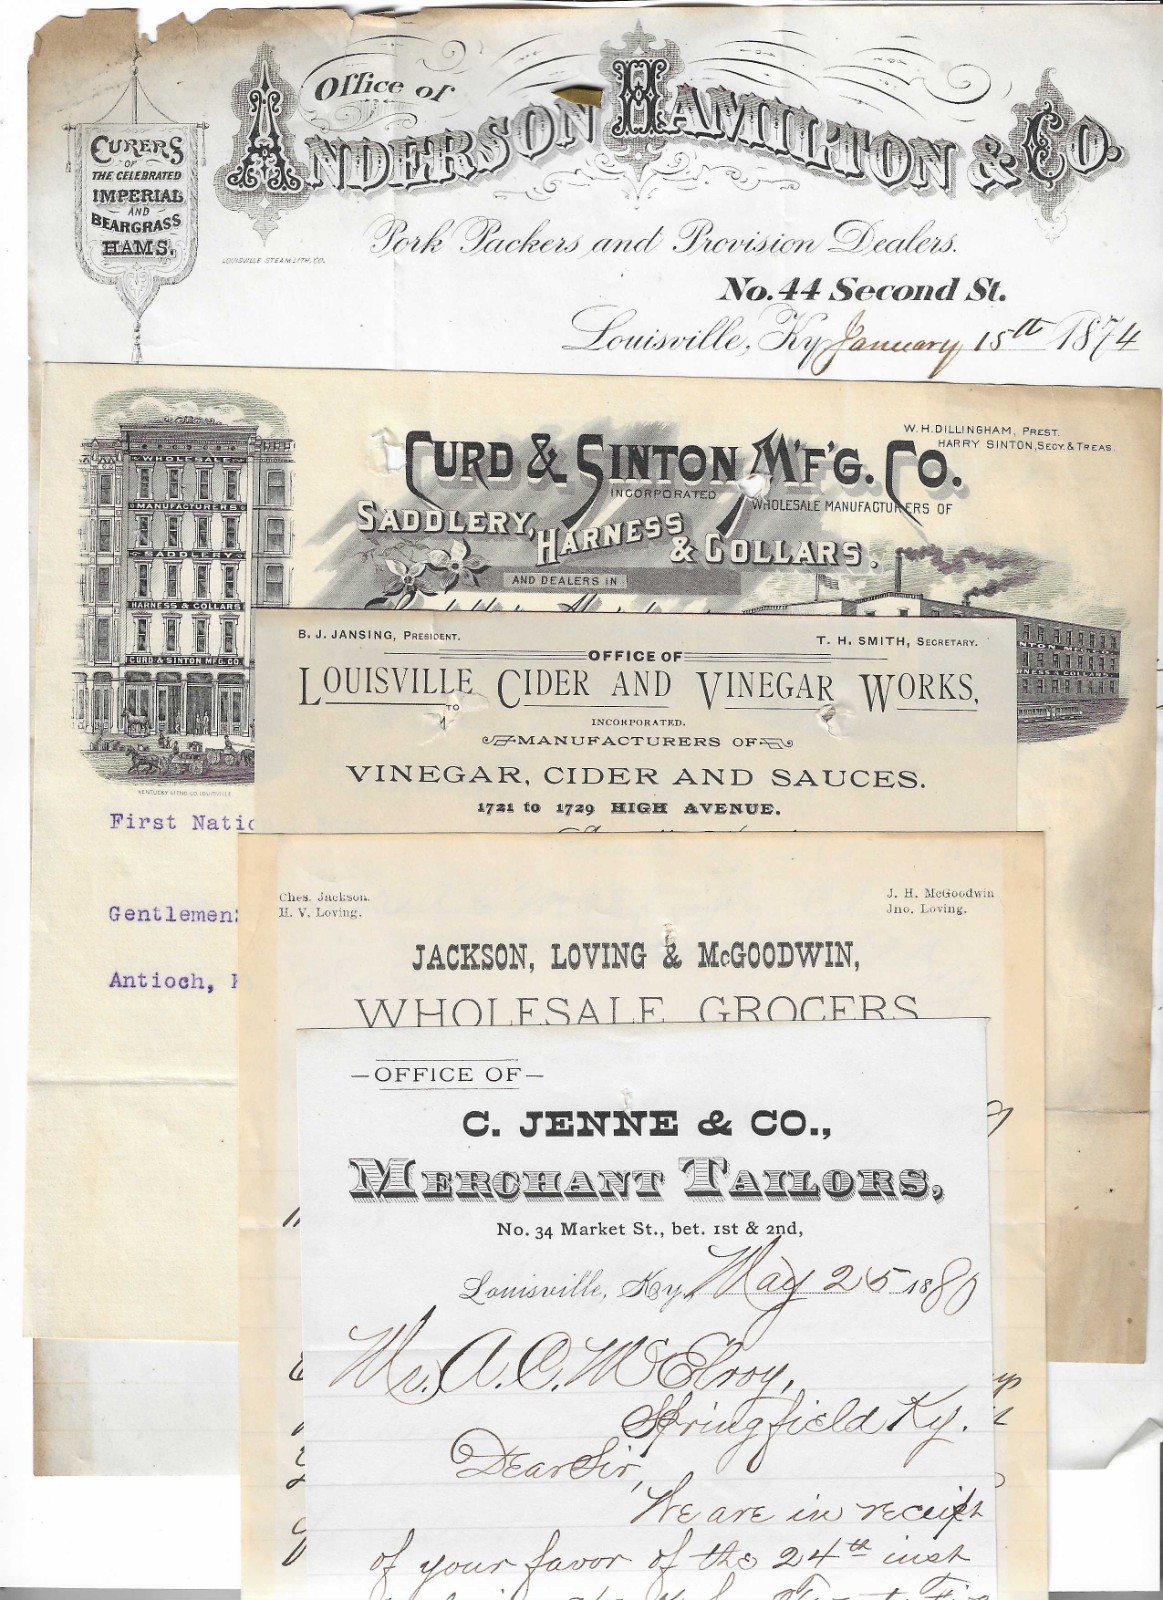 Office of
ANDERSON HAMILTON & Co.
CURERS
OF
THE CELEBRATED
IMPERIAL
AND
BEARGRASS
HAMS.
LOUISVILLE STEAM LITH. CO.
Pork Packers and Provision Dealers.
No. 44 Second St.
Louisville, Ky January 15th 1874
W. H. DILLINGHAM, PREST.
HARRY SINTON, SECY. & TREAS.
CURD & SINTON M'F'G. CO.
INCORPORATED
WHOLESALE MANUFACTURERS OF
SADDLERY, HARNESS & COLLARS.
AND DEALERS IN
WHOLESALE
MANUFACTURERS
SADDLERY
HARNESS & COLLARS
CURD & SINTON MFG. CO.
First Natio
Gentlemen:
Antioch,
B. J. JANSING, PRESIDENT.
T. H. SMITH, SECRETARY.
OFFICE OF
LOUISVILLE CIDER AND VINEGAR WORKS,
TO
INCORPORATED.
MANUFACTURERS OF
VINEGAR, CIDER AND SAUCES.
1721 to 1729 HIGH AVENUE.
Ches. Jackson.
H. V. Loving.
J. H. McGoodwin
Jno. Loving.
JACKSON, LOVING & McGOODWIN,
WHOLESALE GROCERS
—OFFICE OF—
C. JENNE & CO.,
MERCHANT TAILORS,
No. 34 Market St., bet. 1st & 2nd,
Louisville, Ky. May 25 1880
Mr. A. C. McElroy,
Springfield Ky.
Dear Sir,
We are in receipt
of your favor of the 24th inst